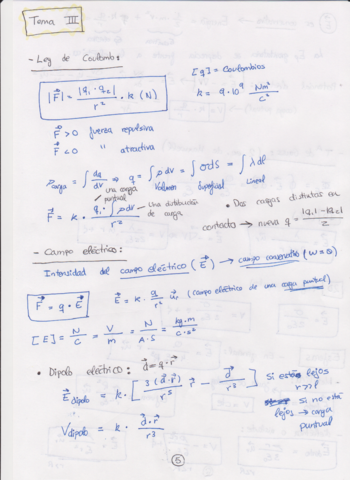 Tema III
- Ley de Coulomb:
|F⃗| = |q₁·q₂| / r² · k (N)
[q] = Coulombios
k = 9·10⁹ Nm²/C²
F⃗ > 0 fuerza repulsiva
F⃗ < 0 " atractiva
ρcarga = ∫ dq/dv → q = ∫ρdv = ∫σdS = ∫λdl
Volumen Superficial Lineal
una carga puntual
F⃗ = k · q₁·∫ρdv / r²
una distribución de carga
• Dos cargas distintas en
contacto → nueva q = |q₁|-|q₂| / 2
- Campo eléctrico:
Intensidad del campo eléctrico (E⃗) → campo conservativo (W = 0)
F⃗ = q · E⃗
E⃗ = k · q/r² · u⃗r (campo eléctrico de una carga puntual)
[E] = N/C = V/m = N/A·s = kg·m/C·s²
• Dipolo eléctrico: d⃗ = q·r⃗
E⃗dipolo = k · [3(d⃗·r⃗)/r⁵ r⃗ - d⃗/r³]
si estás lejos
r>>l
si no está
lejos → carga
puntual
Vdipolo = k · d⃗·r⃗ / r³
5